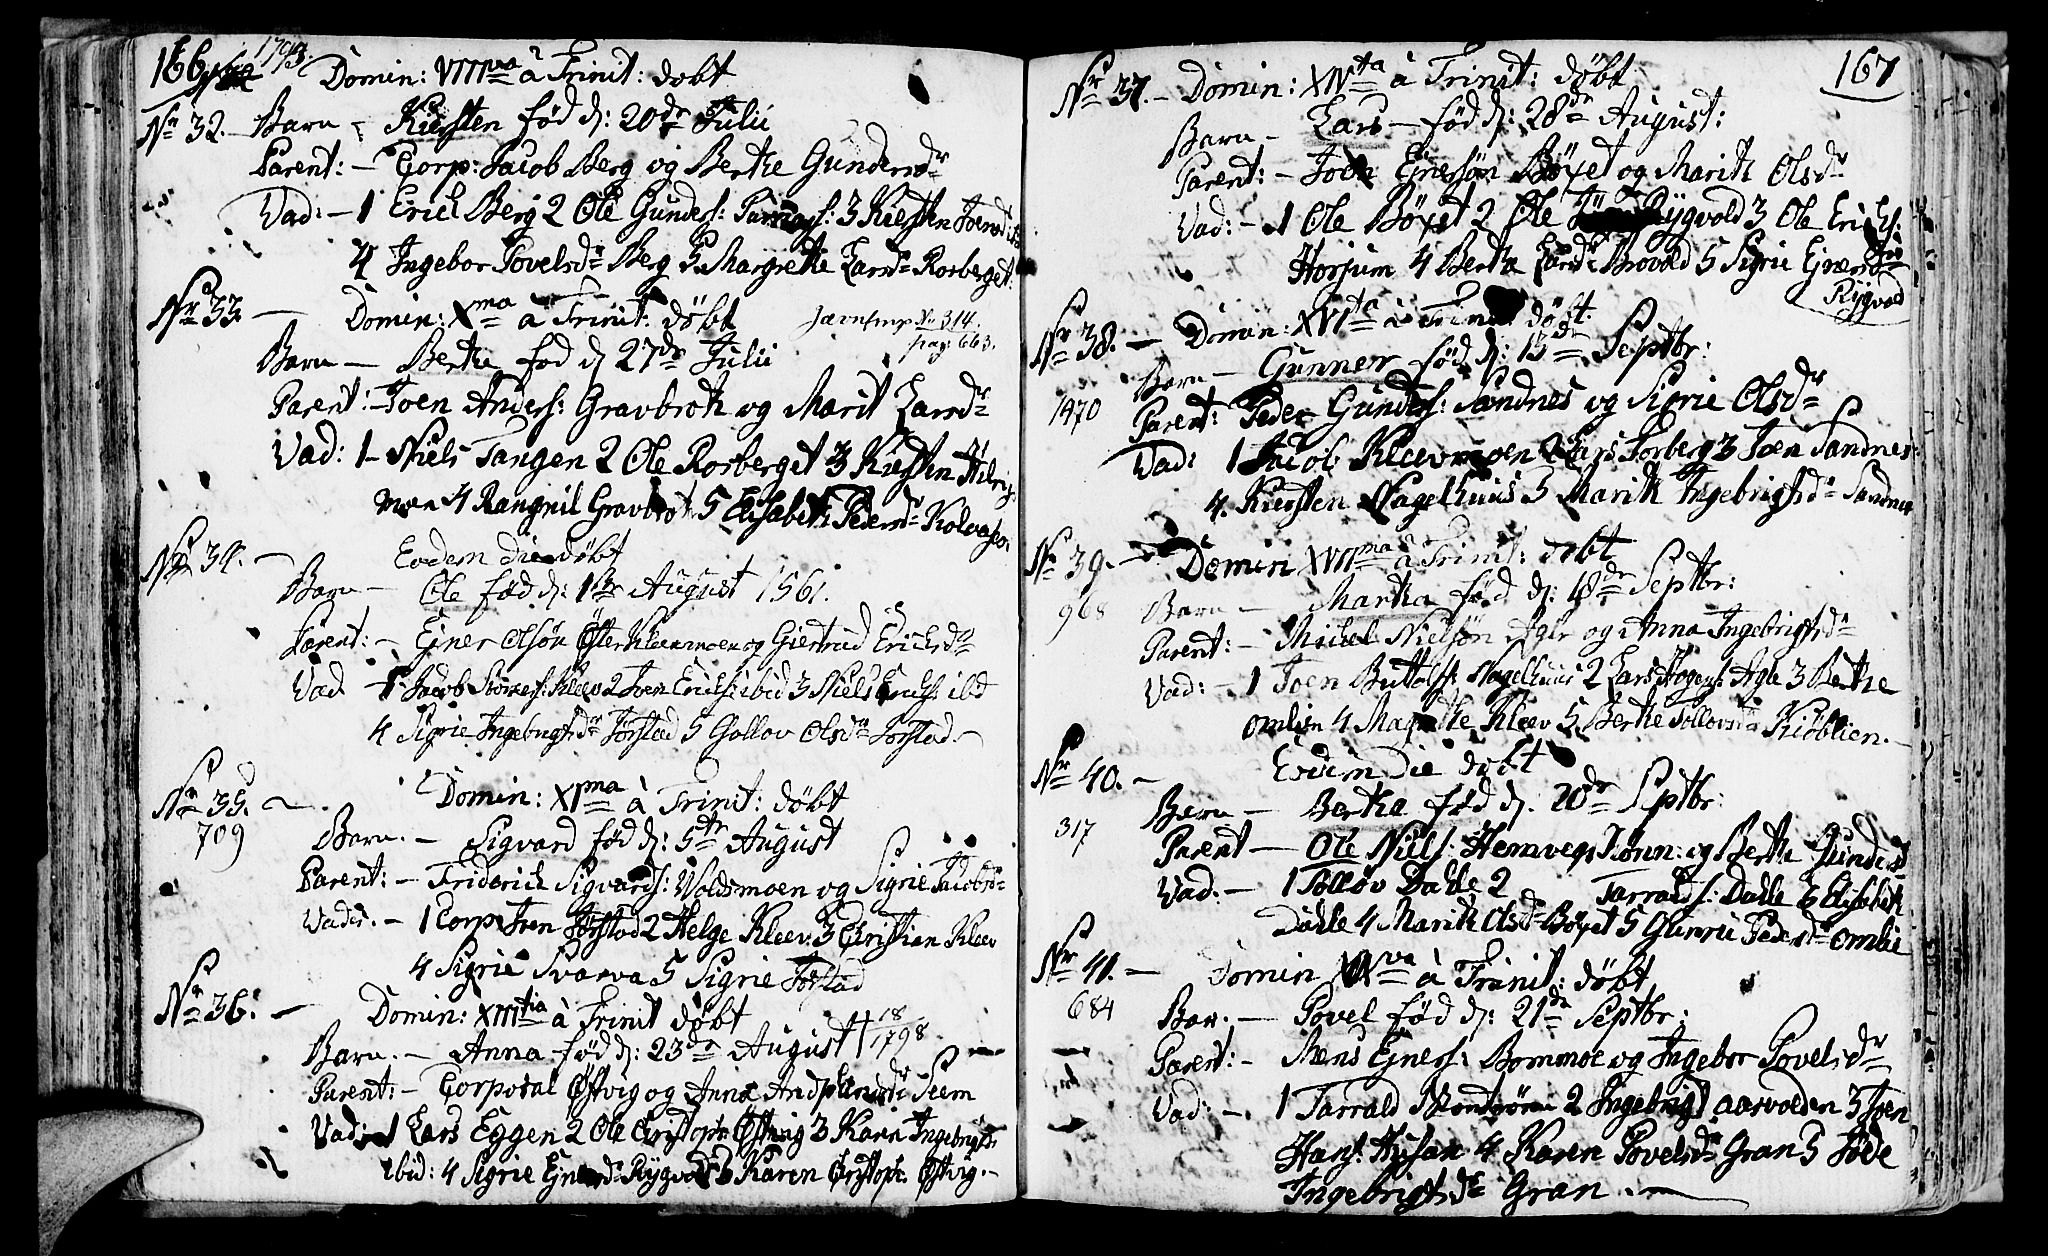 166 1793.
Domin: VIIIva à Trinit: døbt
Nr 32. Barn - Kiersten fød d: 20de Julii
Parent: - Corp: Jacob Berg og Berthe Gundersdr
Vad: - 1 Erich Berg 2 Ole Gunders: 3 Kiersten Joensd
4 Ingebor Povelsdr Berg 5 Margrethe Larsdr Rosberget.
Nr 33. - Domin: Xma à Trinit: døbt
Jævnførmp No 314. pag: 663.
Barn - Berthe fød d 27de Julii
Parent: - Joen Anders: Gravbroth og Marit Larsdr
Vad: 1 - Niels Tangen 2 Ole Rosberget 3 Kiesten
moen 4 Rangnil Gravbroth 5 Elisabeth Pedersdr
Nr 34. - Eodem die døbt
Barn - Ole fød d: 1ste August 1561.
Parent: - Ejner Olsøn Øster Kleevmoen og Giertrud Erichsdr
Vad - 1 Jacob Kleev 2 Joen Erichs: ibid 3 Niels Erichs: ibd
4 Sigrie Ingebrigtsdr Jørstad 5 Gollov Olsdr Jørstad -
Nr 35. - Domin: XIma à Trinit: døbt
709
Barn. - Sigvard fød d: 5te August
Parent: - Friderich Sigvards: Woldsmoen og Sigrie Jacobsdr
Vad: - 1 Corp Joen Jørstad 2 Helge Kleev 3 Christian Kleev
4 Sigrie Svarva 5 Sigrie Jørstad
Nr 36: - Domin: XIIItia à Trinit døbt
Barn. - Anna fød d: 23de August † 18/1798
Parent: - Corporal Østvig og Anna Seem
Vad: 1 Lars Eggen 2 Ole Christoph: Østvig 3 Karen Ingebrigtsdr
ibid: 4 Sigrie Ejnersdr Rygvold 5 Karen Christoph: Østvig. -
167
Nr 37. - Domin: XIVta à Trinit: døbt
Barn - Lars - fød d: 28de August:
Parent: - Joen Ejnersøn Bøyet og Marith Olsdr
Vad: - 1 Ole Bøyet 2 Ole Rygvold 3 Ole Erichs:
Horjum 4 Bertha Larsdr Brovold 5 Sigrie Ejnersdr
Rygvold
Nr 38. - Domin: XVIta à Trinit døbt.
Barn - Gunner fød d: 15de Septbr:
1470
Parent: Peder Gunders: Sandnes og Sigrie Olsdr
Vad: 1 Jacob Kleevmoen 2 Lars Forberg 3 Joen Sandnes
4. Kiersten Nagelhuus 5 Marith Ingebrigtsdr Sandnes
Nr 39. - Domin XVIIma à Trinit: døbt
968
Barn - Martha fød d: 18de Septbr:
Parent: - Michel Nielsøn Agle og Anna Ingebrigtsdr
Vad: - 1 Joen Buttolfs: Nagelhuus 2 Lars Agle 3 Berthe
Omlien 4 Kleev 5 Berthe Tollovsdr Kiøblien. -
Nr 40. - Eodem Die døbt
Barn - Berthe fød d. 20de Septbr:
317
Parent - Ole Niels: Hemvegs og Berthe Gundersd
Vad. - 1 Tolløv Dahle 2 Tarralds: Dahle 3 Elisabeth
Dahle 4 Marith Olsdr Bøyet 5 Gunrie Pedersdr Omlie
Nr 41. - Domin à Trinit: døbt
684
Bar. - Povel fød d: 21de Septbr:
Parent: - Mens Ejners: Bommoe og Ingebor Povelsdr
Vad: - 1 Tarrald 2 Ingebrigt aarvolden 3 Joen
Hans: 4 Karen Povelsdr Gran 5
Ingebrigtsdr Gran. -